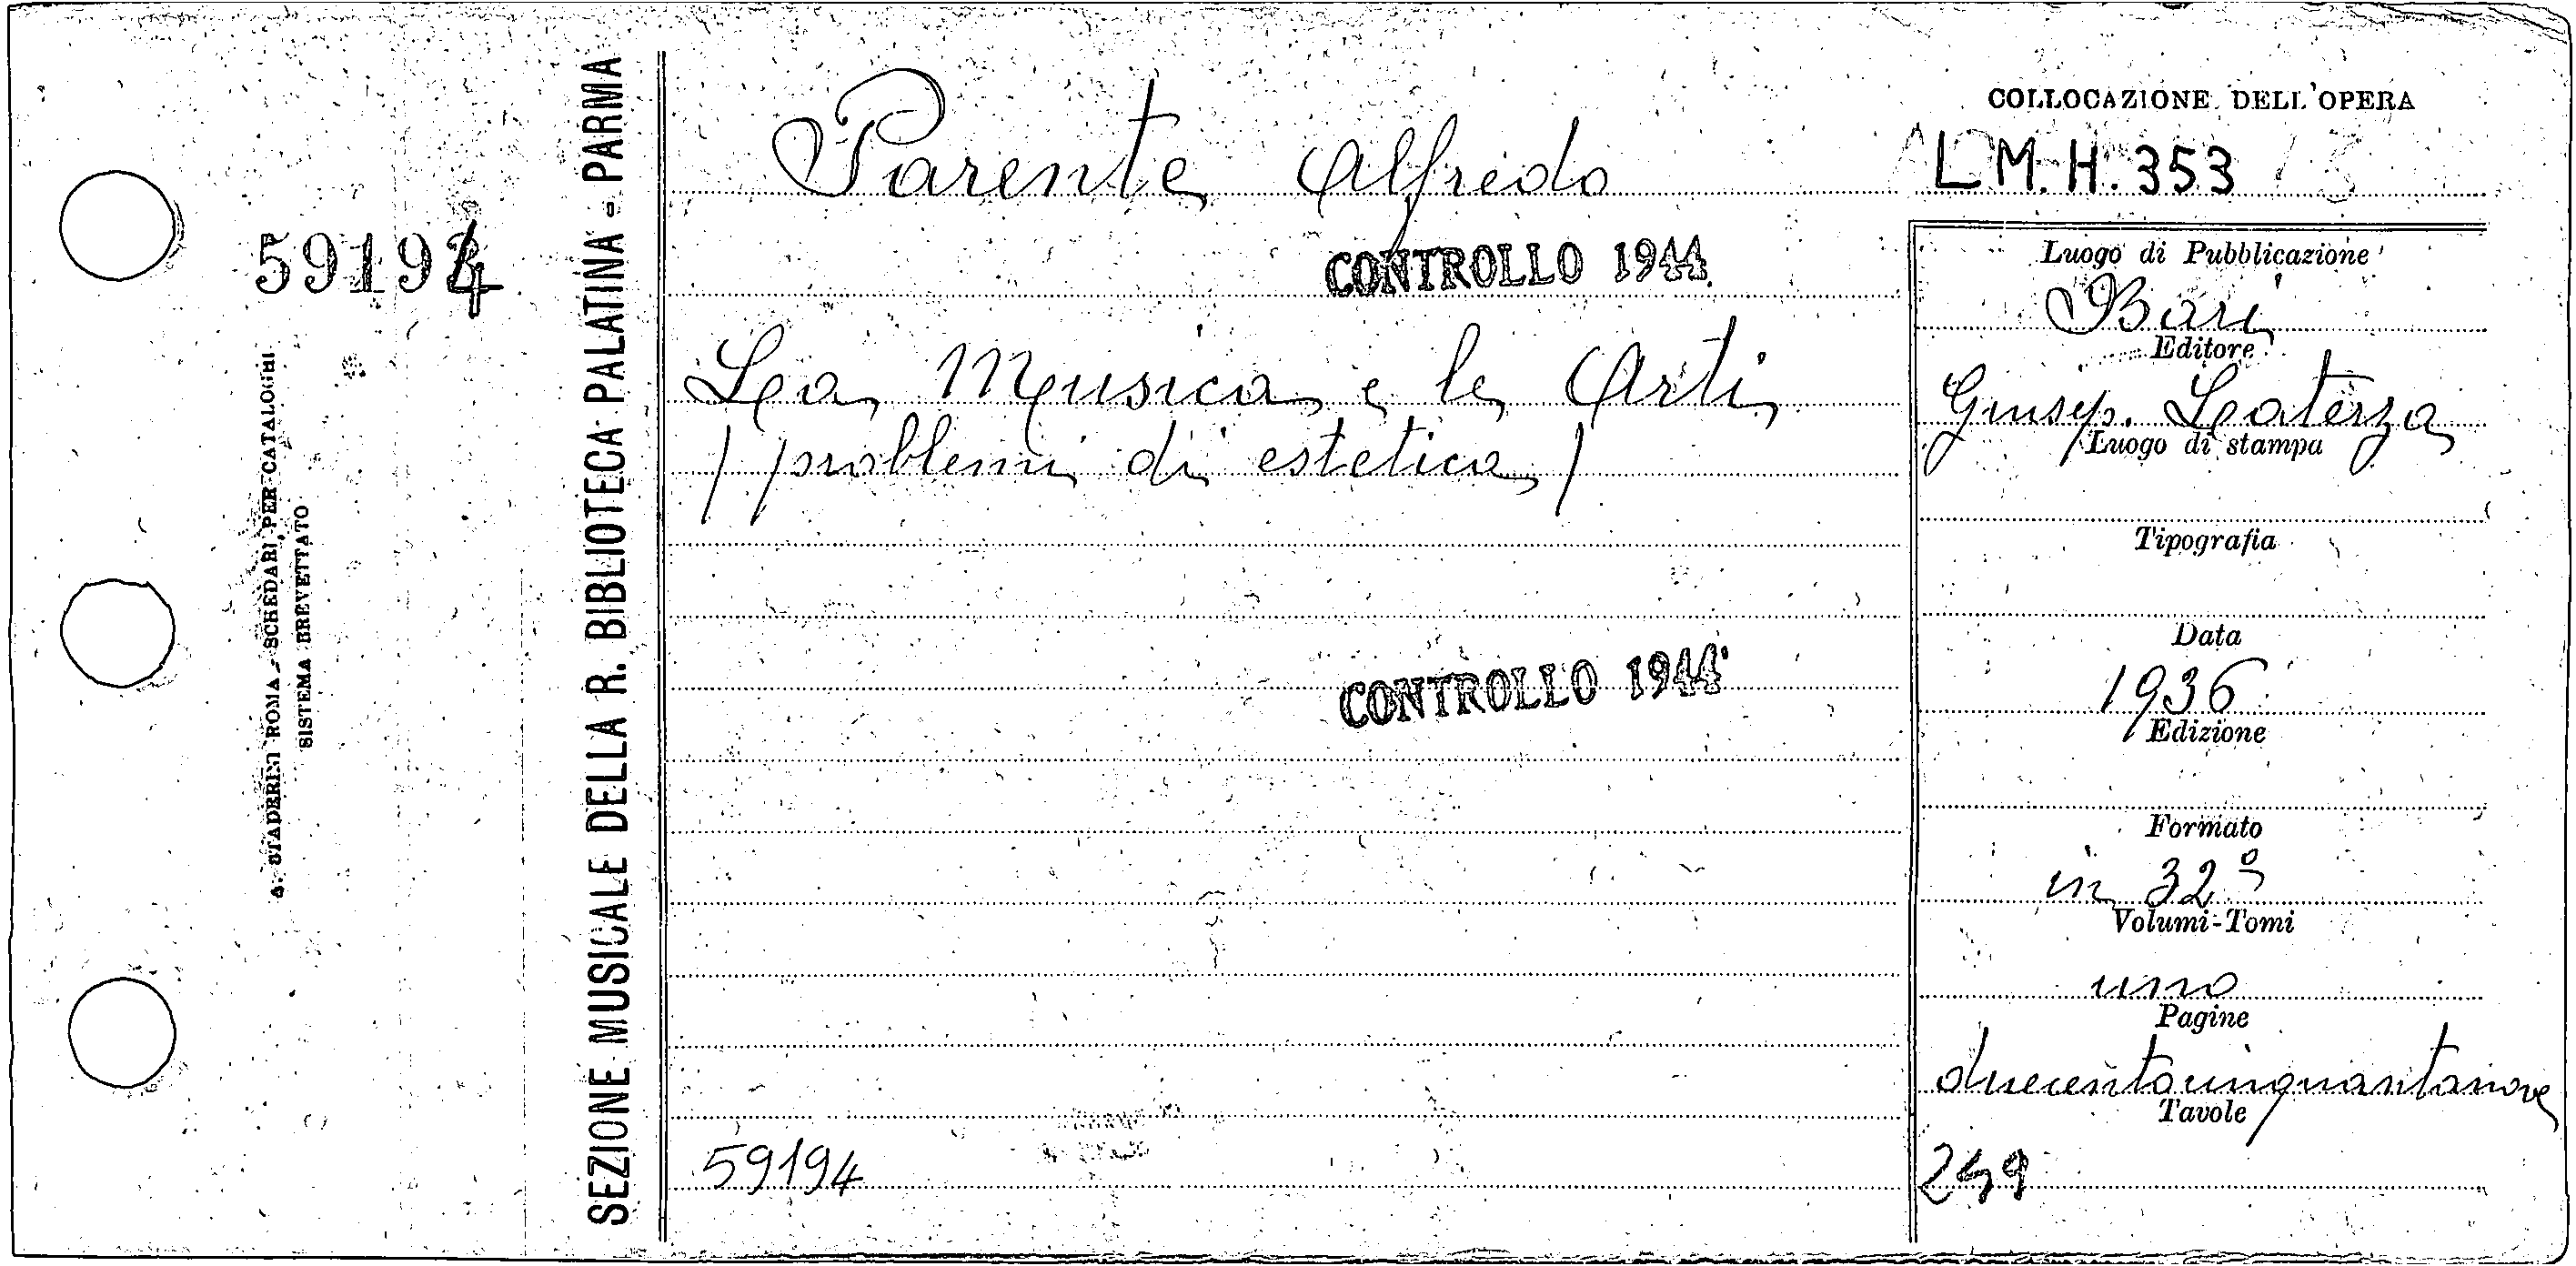 59194
A. STADERINI ROMA - SCHEDARI PER CATALOGHI
SISTEMA BREVETTATO
SEZIONE MUSICALE DELLA R. BIBLIOTECA PALATINA - PARMA
Parente Alfredo
CONTROLLO 1944
La Musica e le Arti
/ problemi di estetica /
CONTROLLO 1944
59194
COLLOCAZIONE DELL'OPERA
L M. H. 353
Luogo di Pubblicazione
Bari
Editore
Giusep. Laterza
Luogo di stampa
Tipografia
Data
1936
Edizione
Formato
in 32º
Volumi-Tomi
uno
Pagine
duecentocinquantanove
Tavole